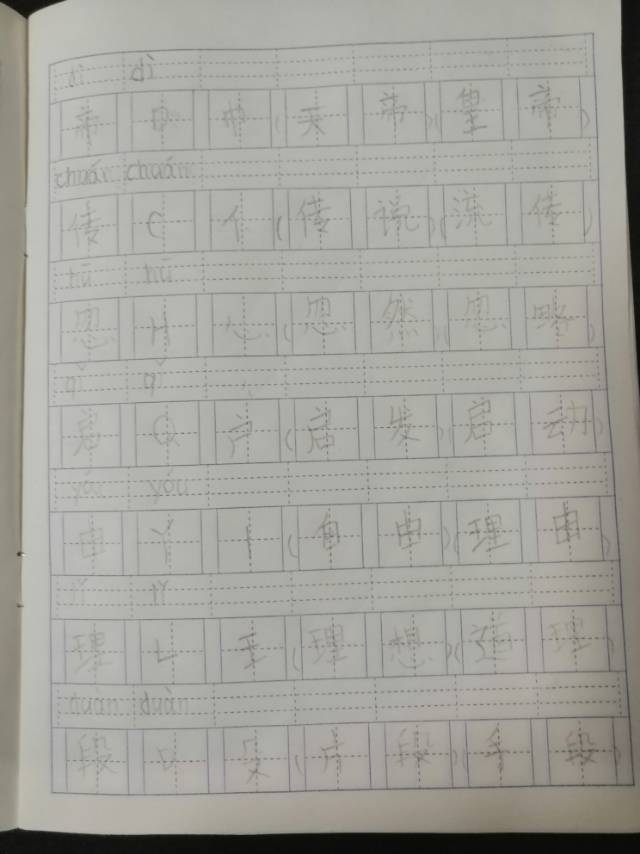 dì dì
帝 D 巾 (天 帝)(皇 帝)
chuán chuán
传 C 亻 (传 说)(流 传)
hū hū
忽 H 心 (忽 然)(忽 略)
qǐ qǐ
启 Q 户 (启 发)(启 动)
yóu yóu
由 Y 丨 (自 由)(理 由)
lǐ lǐ
理 L 王 (理 想)( 理)
duàn duàn
段 D 殳 (片 段)(手 段)